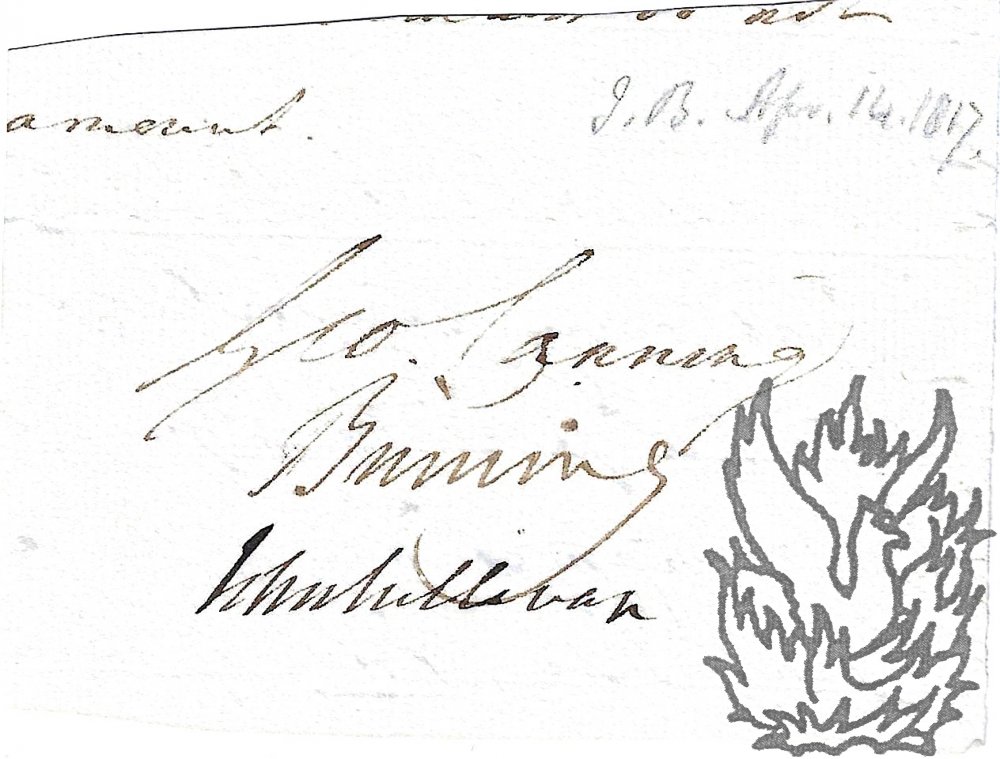 amount. J. B. Apr. 14. 1817.
Geo. Canning
Binning
John Sullivan